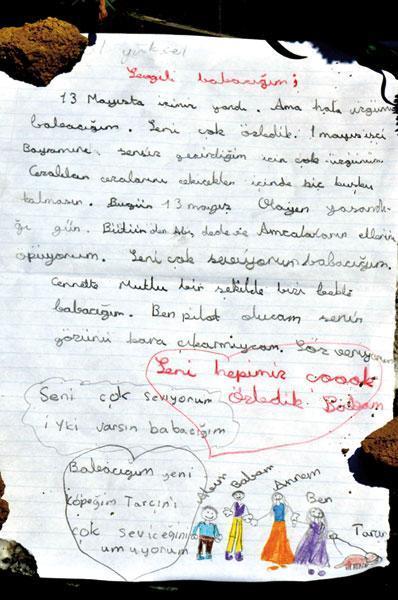 yüksel
Sevgili babacığım;
13 Mayısta içimiz yandı. Ama hala üzgünüm
babacığım. Seni çok özledik. 1 mayıs işci
Bayramını sensiz geçirdiğim için çok üzgünüm.
cezalarını çekicekler içinde bir kuşku
kalmasın. Bugün 13 mayıs Olayın yasandı-
ğı gün. dede ve Amcalarının ellerini
öpüyorum. Seni çok seviyorum babacığım.
Cennette Mutlu bir şekilde bizi bekle
babacığım. Ben pilot olucam senin
yüzünü kara çıkarmıycam. Söz veriyorum
Seni hepimiz coook
özledik Babam
Seni çok seviyorum
iyki varsın babacığım
Babacığım yeni
köpeğim Tarcın'ı
çok seviceğini
umuyorum
Babam
Annem
Ben
Tarcın